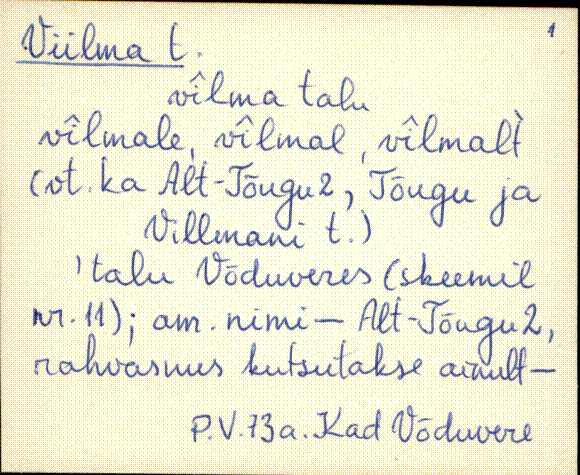 1
Viilma t.
vîlma talu
vîlmale, vîlmal, vîlmalt̀
(vt. ka Alt-Tõugu 2, Tõugu ja
Villmani t.)
'talu Võduveres (skeemil
nr. 11); am. nimi — Alt-Tõugu 2,
rahvasuus kutsutakse ainult —
P.V. 73a. Kad Võduvere